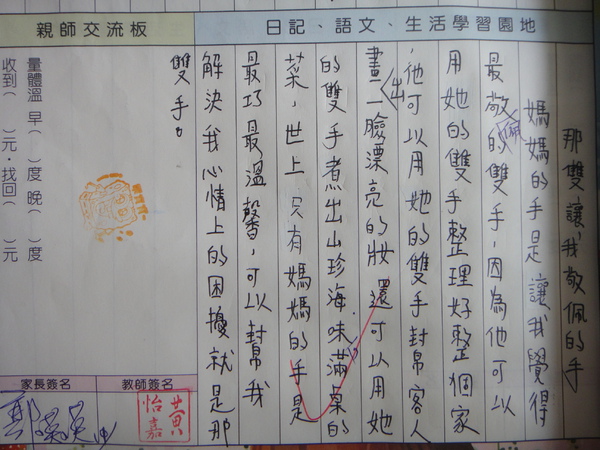 日記、語文、生活學習園地
那雙讓我敬佩的手
媽媽的手是讓我覺得
最敬佩的雙手,因為他可以
用她的雙手整理好整個家
,他可以用她的雙手幫客人
畫出一臉漂亮的妝還可以用她
的雙手煮出山珍海味滿桌的
菜,世上只有媽媽的手是
最巧最溫馨,可以幫我
解決我心情上的困擾就是那
雙手。
親師交流板
量體溫 早( )度 晚( )度
收到( )元‧找回( )元
教師簽名
黃怡嘉
家長簽名